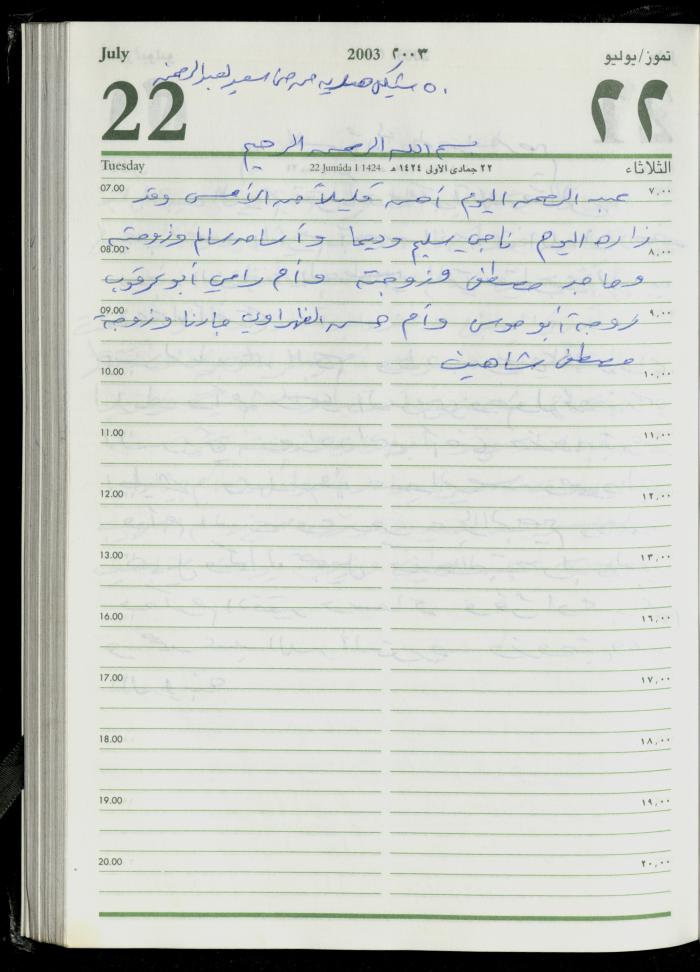 July 2003 ٢٠٠٣ تموز/يوليو
٥٠ شيكل هديه من سعيد لعبد الرحمن
22 ٢٢
بسم الله الرحمن الرحيم
Tuesday 22 Jumâda I 1424 ٢٢ جمادى الأولى ١٤٢٤ هـ الثلاثاء
07.00 عبد الرحمن اليوم أحسن قليلاً من الأمس وقد ٧,٠٠
زاره اليوم ناجي سليم وديما وأسامه سالم وزوجته
08.00 ٨,٠٠
وماجد مصطفى وزوجته وأم رامي أبو عرقوب
09.00 زوجة أبو موسى وأم حسن الظهراوي جارنا وزوجة ٩,٠٠
مصطفى شاهين
10.00 ١٠,٠٠
11.00 ١١,٠٠
12.00 ١٢,٠٠
13.00 ١٣,٠٠
16.00 ١٦,٠٠
17.00 ١٧,٠٠
18.00 ١٨,٠٠
19.00 ١٩,٠٠
20.00 ٢٠,٠٠